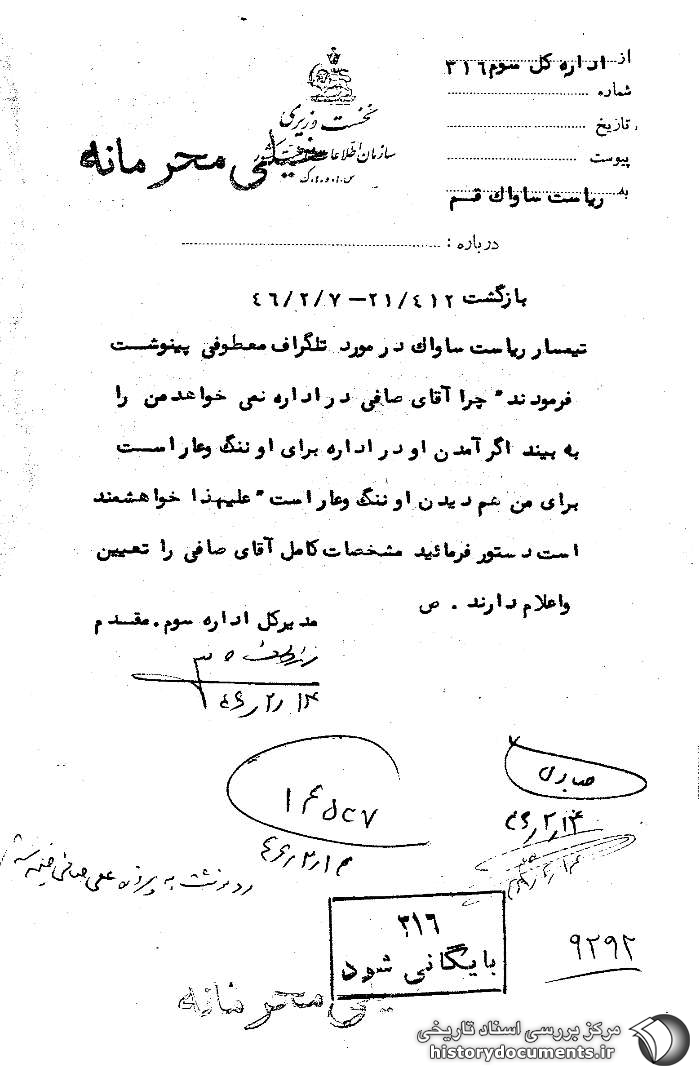 از اداره کل سوم ۳۱۶
شماره
تاریخ
پیوست
به ریاست ساواک قم
نخست وزیری
سازمان اطلاعات
س.ا.و.ا.ک
خیلی محرمانه
درباره :
بازگشت ۲۱/٤۱۲ – ٤٦/۲/۷
تیمسار ریاست ساواک در مورد تلگراف معطوفی پینوشت
فرمودند" چرا آقای صافی در اداره نمی خواهد من را
به بیند اگر آمدن او در اداره برای او ننگ و عار است
برای من هم دیدن او ننگ و عار است" علیهذا خواهشمند
است دستور فرمائید مشخصات کامل آقای صافی را تعیین
و اعلام دارند . ص
مدیرکل اداره سوم . مقدم
۴۶٫۲٫۱۴
۴۶٫۲٫۱۴
۴۶٫۲٫۱۳
رونوشت به پرونده علی صافی ضمیمه شد
۳۱٦
بایگانی شود
۹۲۹۲
خیلی محرمانه
مرکز بررسی اسناد تاریخی
historydocuments.ir